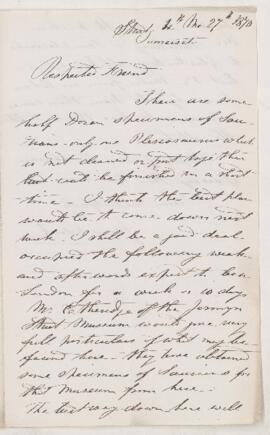 Street 4th Mo 27th 1870
Somerset
Respected Friend
There are some
half Dozen specimens of Sau-
rians - only one Plesiosaurus which
is not cleaned or put hope this
last will be finished in a short
time - I think the best plan
would be to come down next
week - I shall be a good deal
occupied the following week
and afterwards expect to be in
London for a week or 10 days
Mr Etheridge of the Jermyn
Street Museum would give very
full particulars of what may be
found here - they have obtained
some specimens of Saurians for
that Museum from here -
The best way down here will